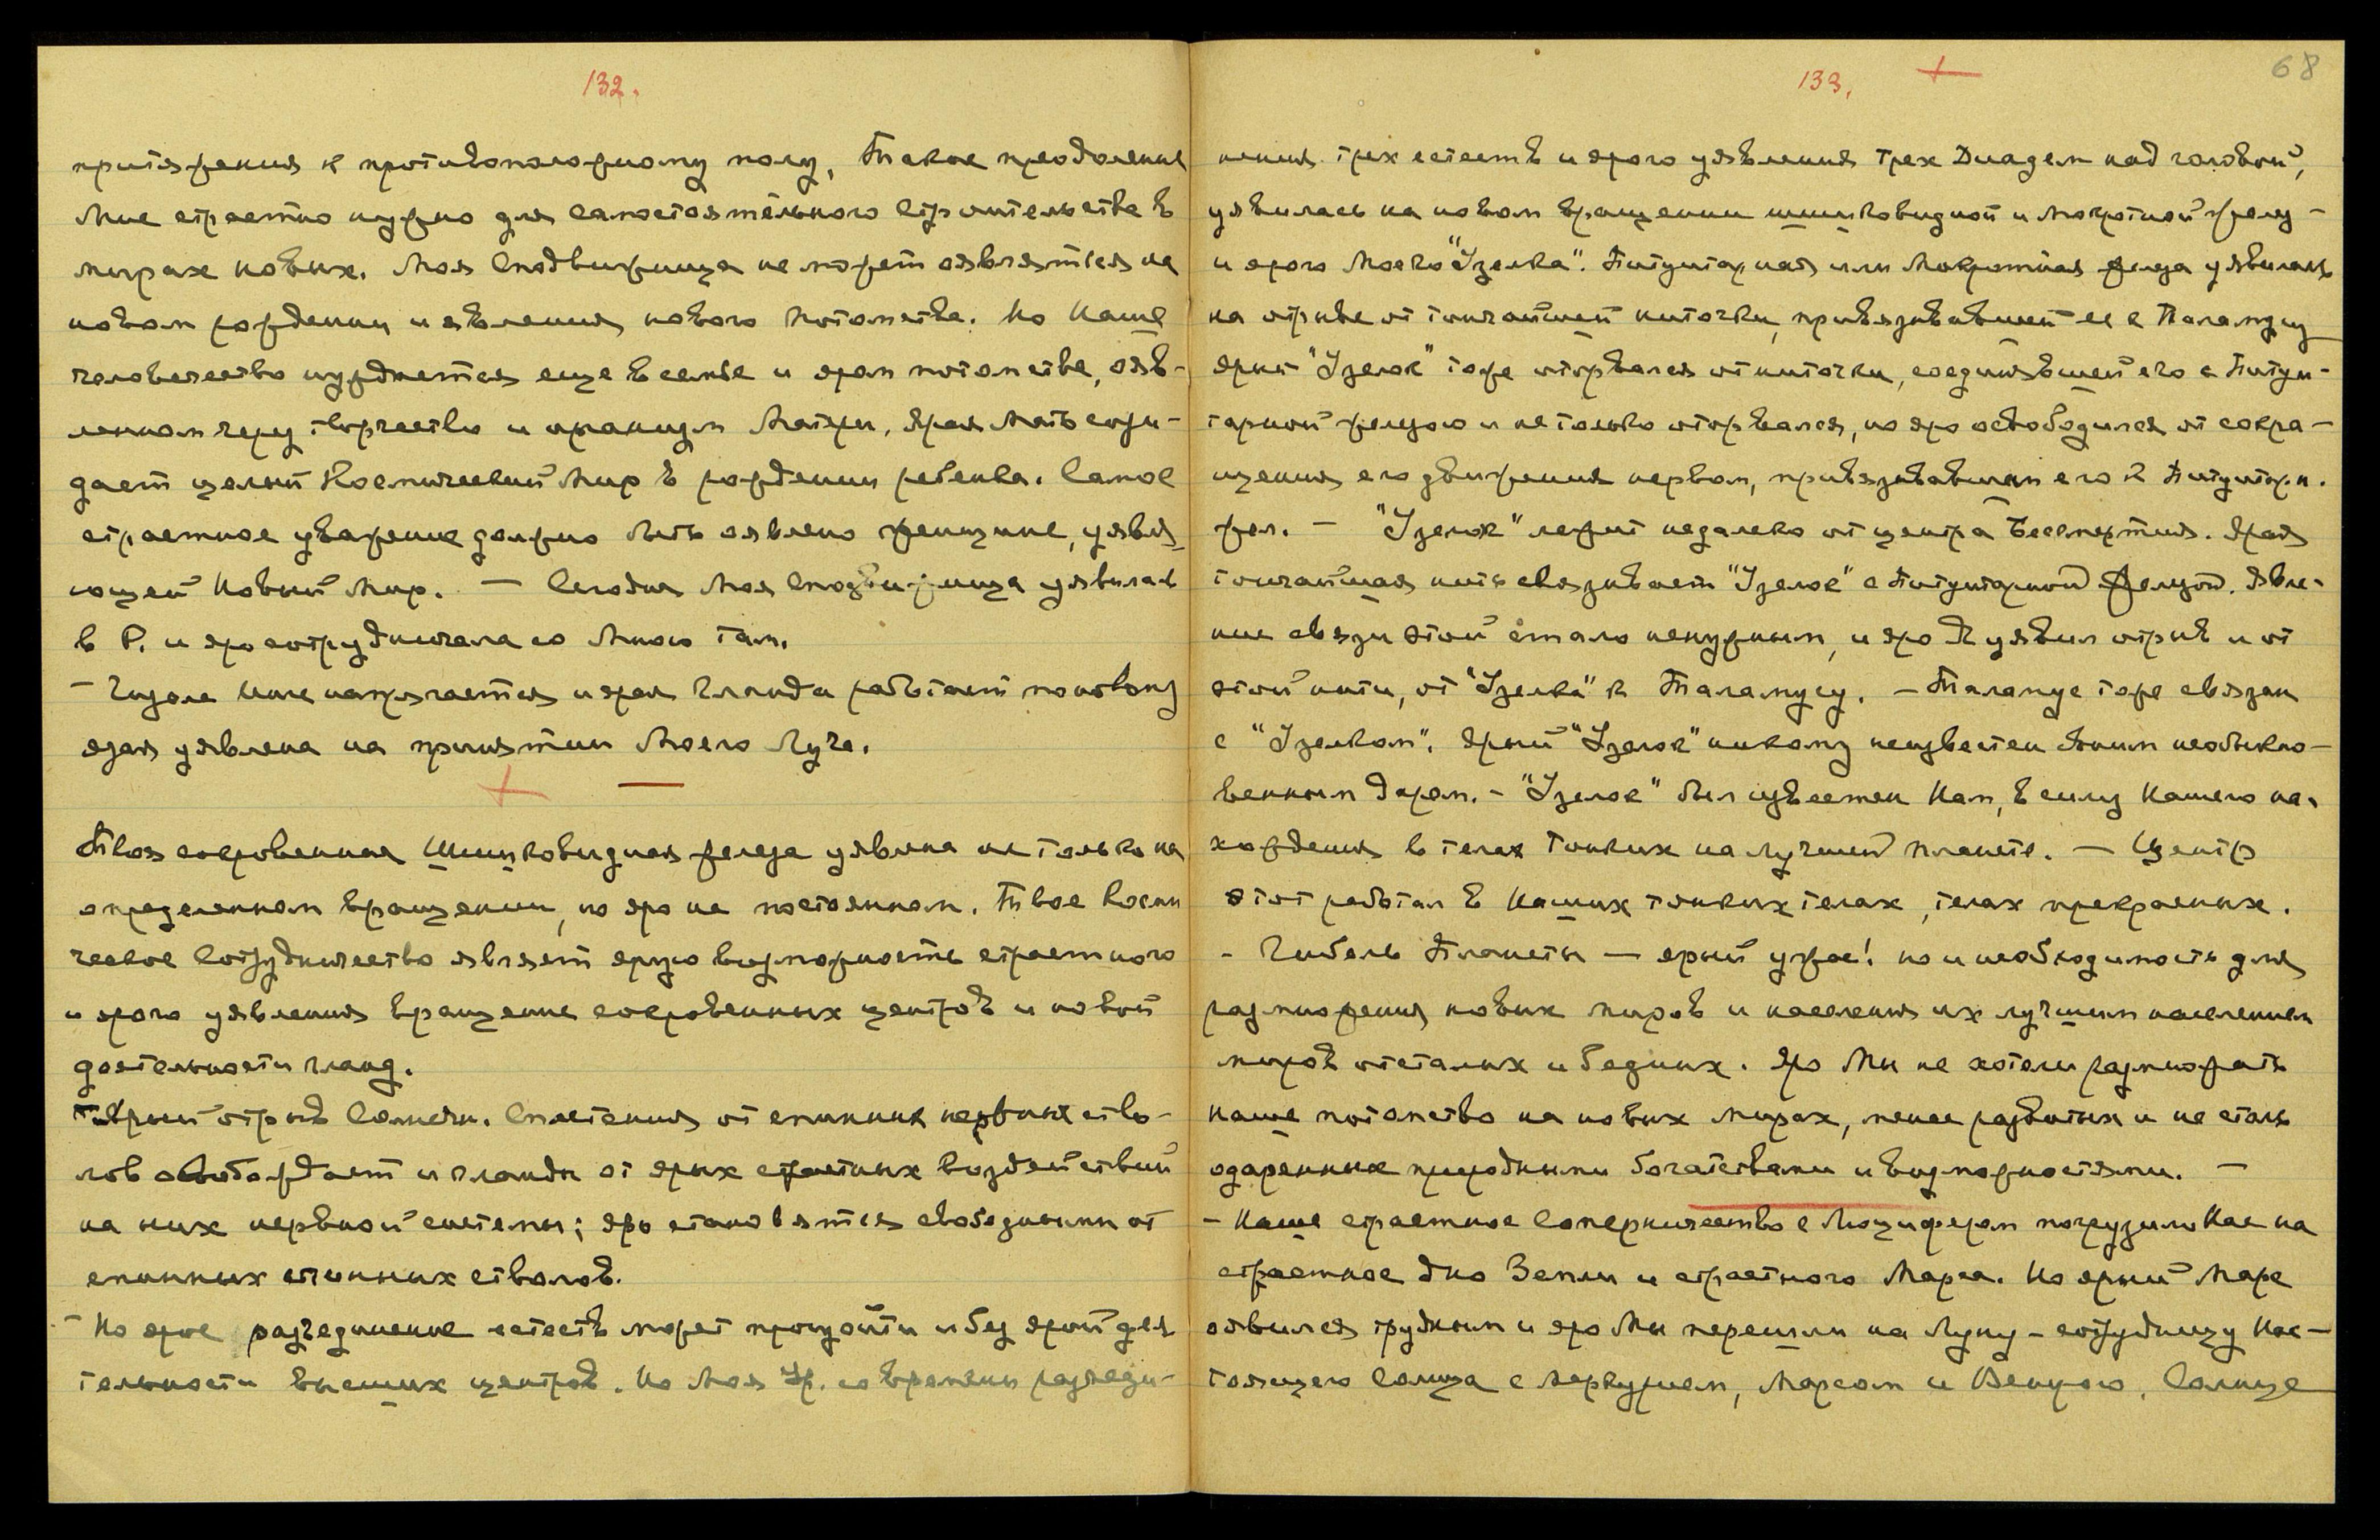 132.
притяжения к противоположному полу. Такое преодоление
Мне страстно нужно для самостоятельного строительства в
мирах новых. Моя Сподвижница не может оявляться на
новом рождении и явлении нового потомства. Но Наше
человечество нуждается еще в семье и яром потомстве, ояв-
ленном через творчество и Матери. Ярая Мать сози-
дает целый Космический Мир в рождении ребенка. Самое
страстное уважение должно быть оявлено женщине, уявля-
ющей Новый Мир. — Сегодня Моя Сподвижница уявилась
в Р. и яро сотрудничала со Мною там.
— напрягается и ярая Гланда работает по новому
ярая уявлена на принятии Моего Луча.
Твоя сокровенная Шишковидная железа уявлена не только на
определенном вращении, но яро на постоянном. Твое Косми
ческое Сотрудничество являет ярую возможность страстного
и ярого уявления вращение сокровенных центров и новой
деятельности гланд.
Ярый отрыв Солнечн. Сплетения от спинных нервных ство-
лов освобождает и гланды от ярых страстных воздействий
на них нервной системы; яро становятся свободными от
спинных стволов.
— Но ярое разъединение естеств может произойти и без ярой дея
тельности высших центров. Но Моя Ур. со времени разъеди-
133. 68
нения трех естеств и ярого уявления трех Диадем над головой,
уявилась на новом вращении шишковидной и мокротной желез —
и ярого Моего "Узелка". Питуитарная или Мокротная железа уявилась
на отрыве от тончайшей ниточки, привязывавшей ее к Таламусу
Ярый "Узелок" тоже оторвался от ниточки, соединявшей его с Питуи-
тарной железою и не только оторвался, но яро освободился от сокра-
щения его движения нервом, привязывавшим его к Питуитарн.
жел. — "Узелок" лежит недалеко от центра Бессмертия. Ярая
тончайшая нить связывает "Узелок" с Питуитарной железой. Явле-
ние связи этой стало ненужным, и яро Я уявил отрыв и от
этой нити, от "Узелка" к Таламусу. — Таламус тоже связан
с "Узелком". Ярый "Узелок" никому неизвестен Моим необыкно-
венным даром. — "Узелок" был известен Нам, в силу Нашего на-
хождения в телах Тонких на лучшей планете. — Центр
этот работал в Наших тонких телах, телах прекрасных.
— Гибель Планеты — ярый ужас! но и необходимость для
размножения новых миров и населения их лучшим населением
миров отсталых и бедных. Яро Мы не хотели размножать
наше потомство на новых мирах, менее развитых и не столь
одаренных природными богатствами и возможностями. —
— Наше страстное Соперничество с Люцифером погрузило Нас на
страстное дно Земли и страстного Марса. Но ярый Марс
оявился трудным и яро Мы перешли на Луну — сотрудницу Нас-
тоящего Солнца с Меркурием, Марсом и Венерою. Солнце